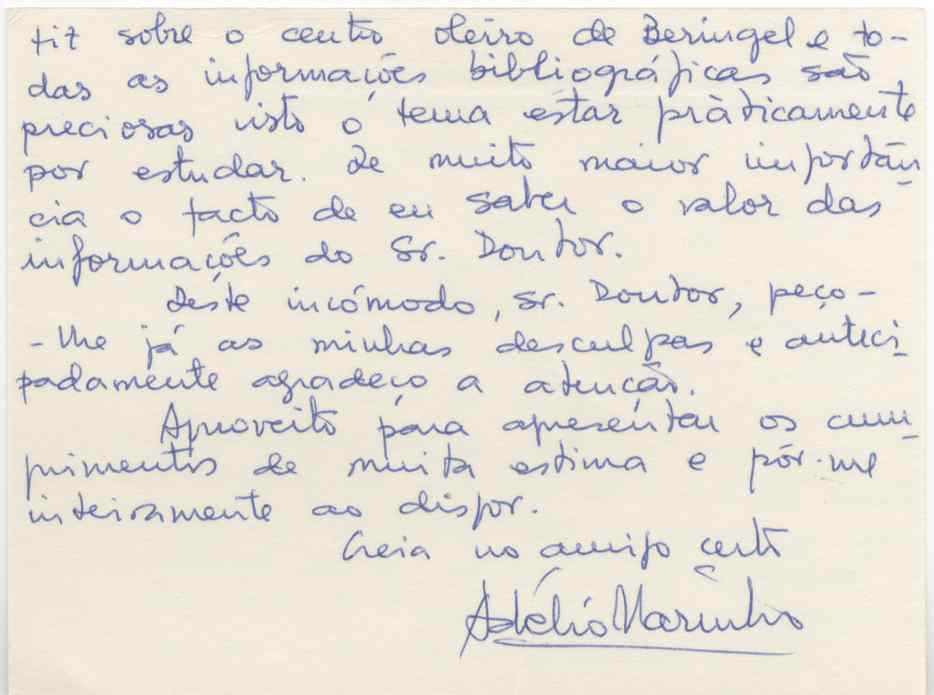 tir sobre o centro oleiro de Beringel e to-
das as informações bibliográficas são
preciosas visto o tema estar pràticamente
por estudar. De muito maior importân-
cia o facto de eu saber o valor das
informações do Sr. Doutor.
Deste incómodo, Sr. Doutor, peço-
-lhe já as minhas desculpas e anteci-
padamente agradeço a atenção.
Aproveito para apresentar os cum-
primentos de muita estima e pôr-me
inteiramente ao dispor.
Creia no amigo certo
Adélio Marinho